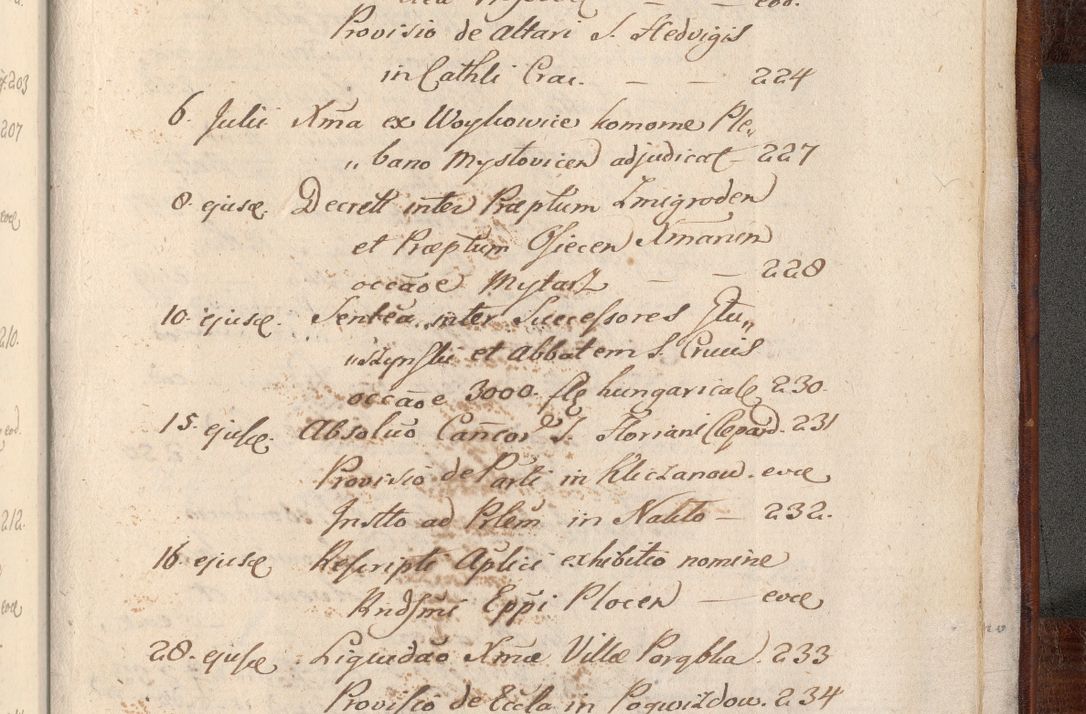 Provisio de Altari S. Hedvigis
in Cathli Crac. — — 224
6. Julii Xma ex Woykowice homome Ple„
„bano Myslovicen adjudicat 227
8. ejusdę. Decrett inter Præptum Zmigroden
et Præptum Osiecen Xmanin
occãoe Mytarz — — 228
10. ejusdę. Senteã inter Successores Stu„
„szynski et Abbatem S. Crucis
occãoe 3000 flę hungaricalę 230.
15. ejusdę. Absoluõ Cañcor S. Floriani Clepard. 231
Provisio de Parli in Kliczanow. eodę
Instto ad Prlem in Nakło — 232.
16. ejusdę Rescripti Aplici exhibitio nomine
Rndsmi Eppi Plocen — eodę
28. ejusdę Liquidaõ Xmæ Villæ Porąbka. 233
Provisio de Eccla in Pogwizdow. 234
203
207
210.
eod.
212.